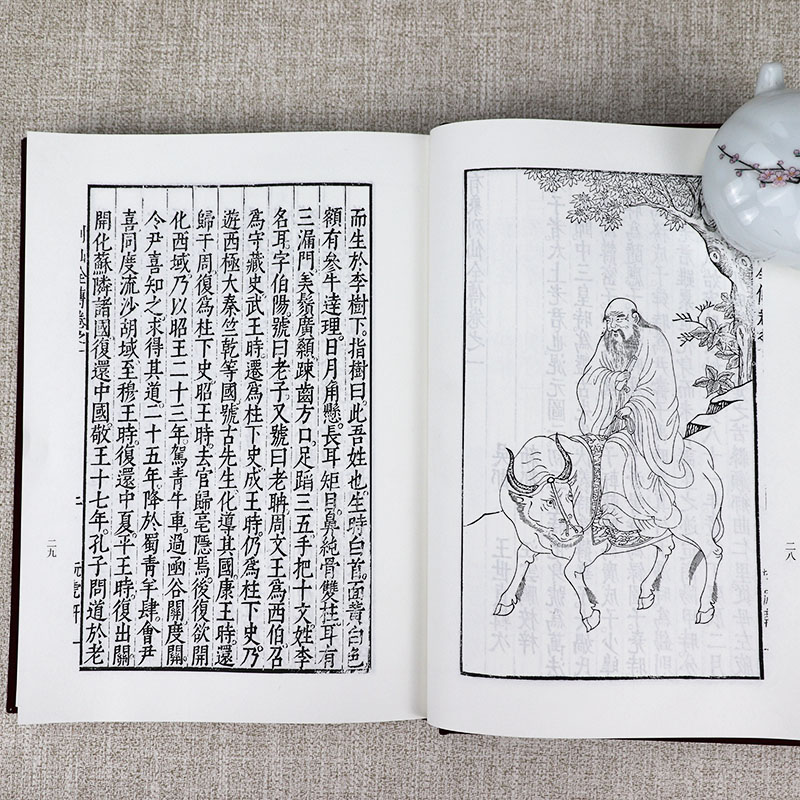 二八
而生於李樹下。指樹曰。此吾姓也。生時白首。面黃白色
額有參牛達理。日月角懸。長耳矩目。鼻純骨雙柱。耳有
三漏門。美鬚廣顙。疎齒方口。足蹈三五。手把十文。姓李
名耳字伯陽。號曰老子。又號曰老聃。周文王爲西伯。召
爲守藏史。武王時。遷爲柱下史。成王時。仍爲柱下史。乃
遊西極大秦竺乾等國。號古先生。化導其國。康王時。還
歸于周。復爲柱下史。昭王時。去官歸亳隱焉。後復欲開
化西域。乃以昭王二十三年。駕青牛車。過函谷關。度關
令尹喜知之。求得其道。二十五年。降於蜀青羊肆。會尹
喜同度流沙胡域。至穆王時。復還中夏。平王時。復出關
開化蘇隣諸國。復還中國。敬王十七年。孔子問道於老
二九